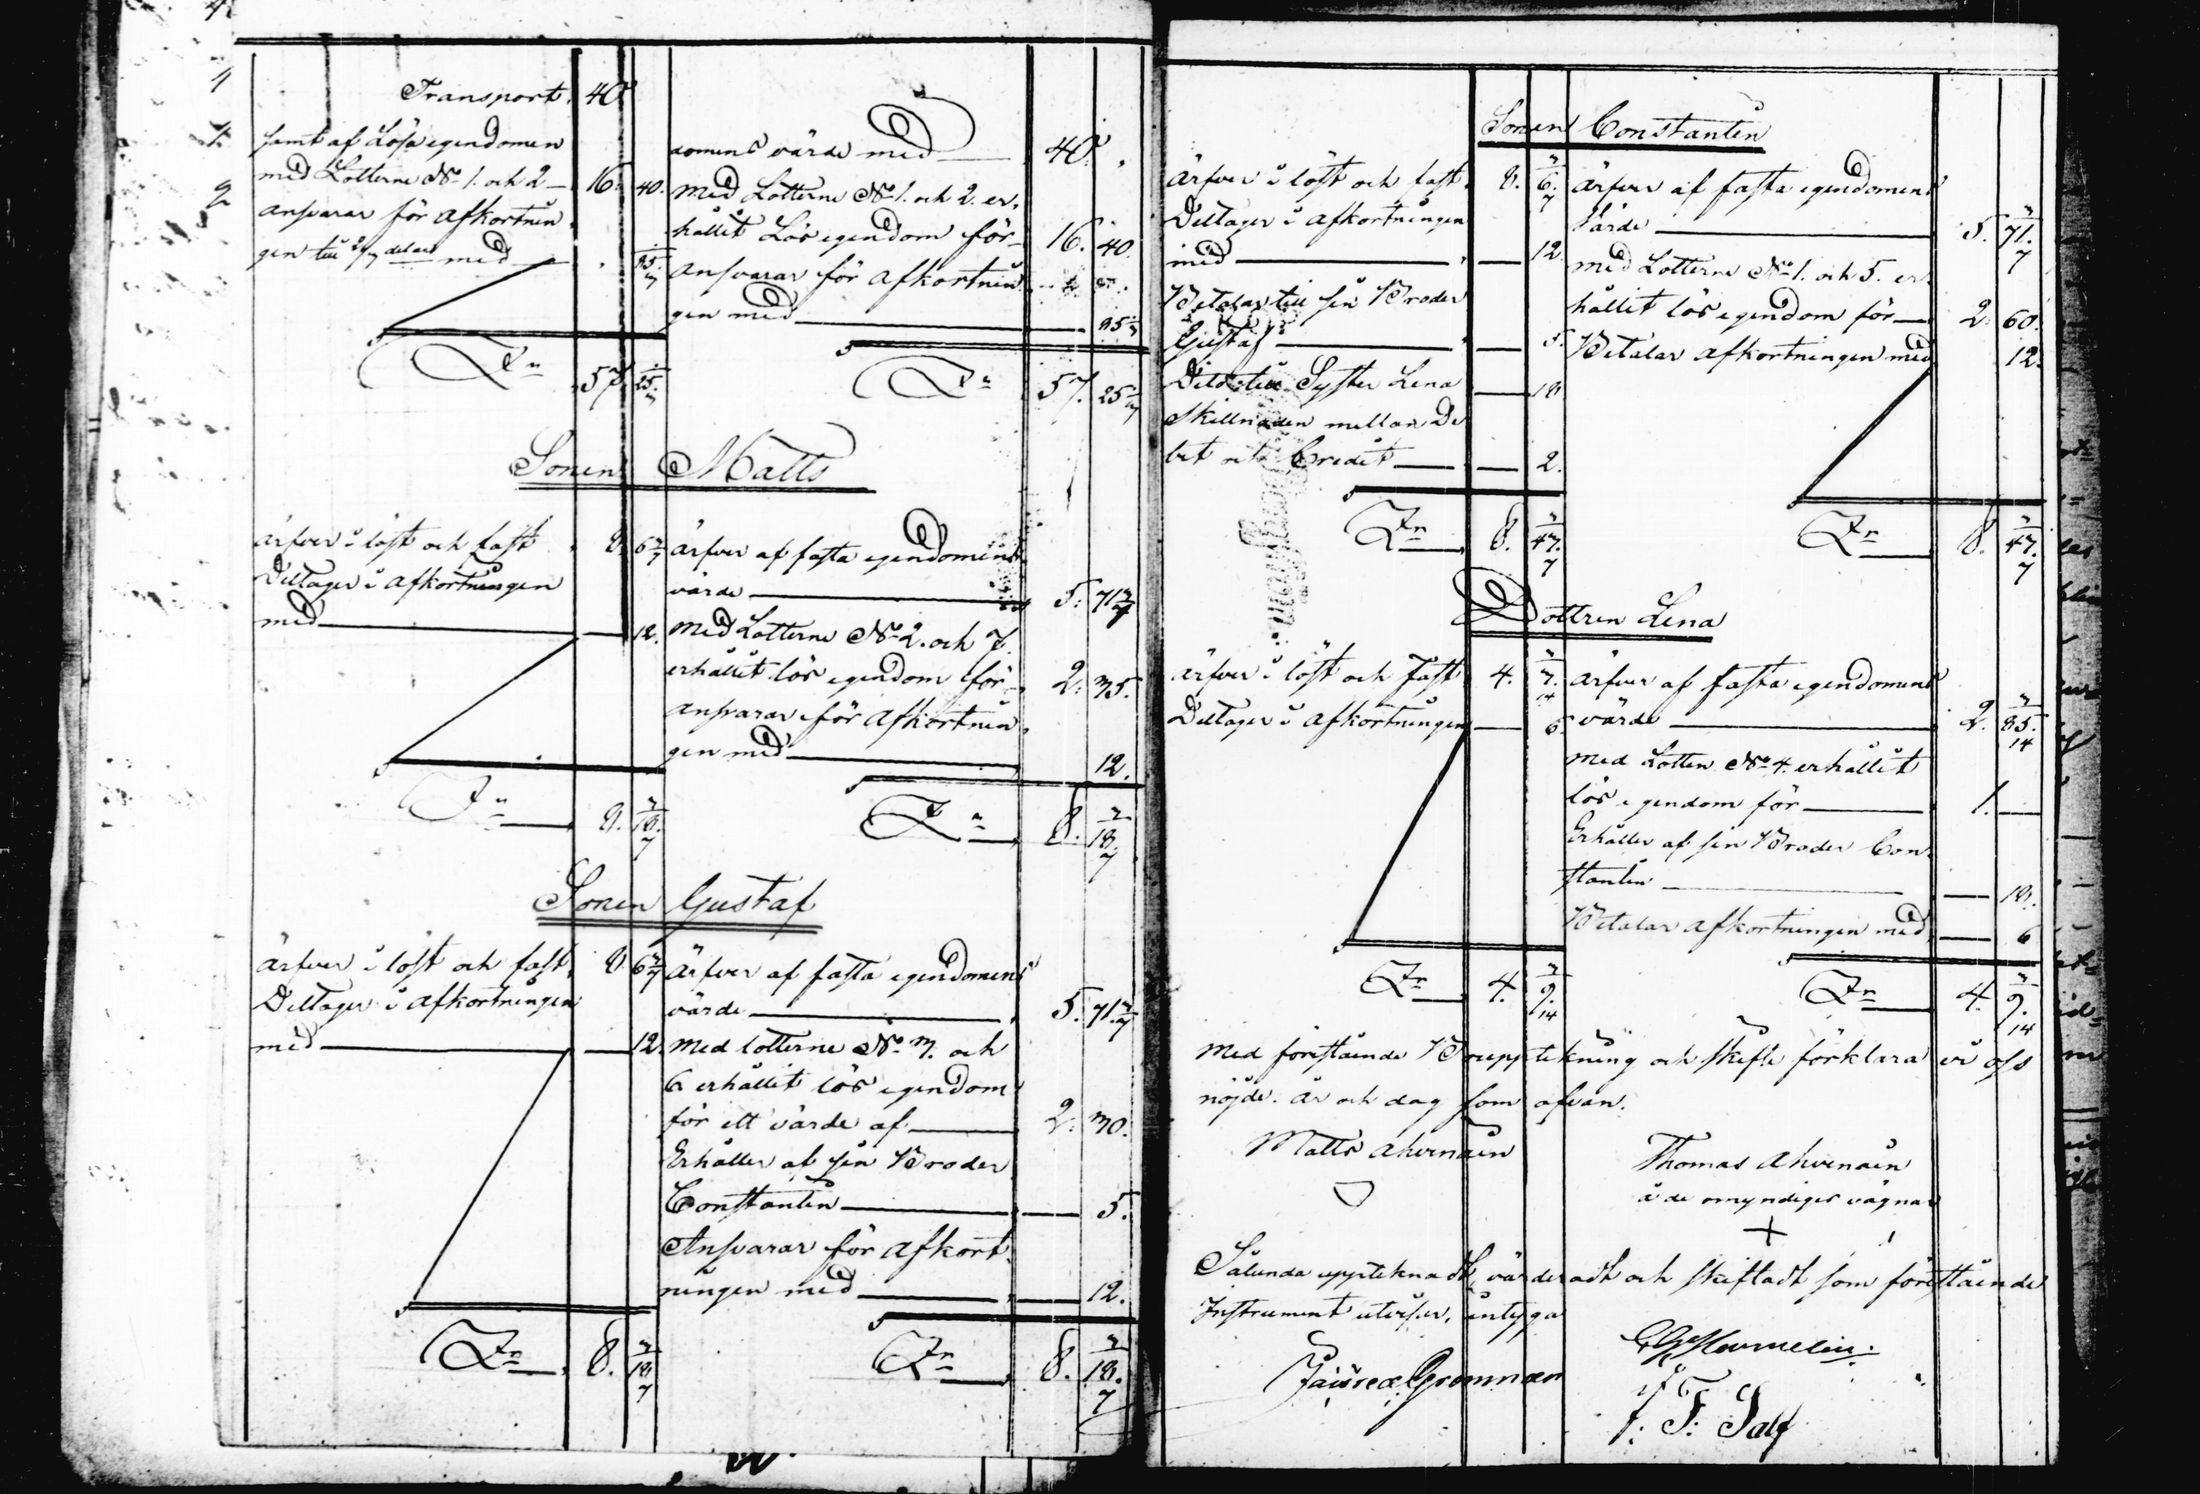 Transport. 40
samt af Lösa egendomen
med Lotterne No 1. och 2 — 16. 40.
ansvarar för afkortnin
gen till 2/7 delar med — 85 5/7
Sa 57. 25 5/7
domens värde med — 40.
Med Lotterne No 1. och 2. er-
hållit Lös egendom för — 16. 40.
ansvarar för afkortnin
gen med — 85 5/7
Sa 57. 25 5/7
Sonen Matts
ärfver i löst och fast 8. 6 3/7
Deltager i afkortningen
med — 12.
Sa 8. 18 3/7
ärfver af fasta egendomens
värde — 5. 71 3/7
Med Lotterne No 2. och 7.
erhållit lös egendom för 2. 35.
ansvarar för afkortnin
gen med — 12.
Sa 8. 18 3/7
Sonen Gustaf
ärfver i löst och fast. 8. 6 3/7
Deltager i afkortningen
med — 12.
Sa 8. 18 3/7
Ärfver af fasta egendomens
värde — 5. 71 3/7
Med lotterne No 3. och
6 erhållit lös egendom
för ett värde af — 2. 30.
Erhåller af sin Broder
Constantin — 5.
Ansvarar för afkort
ningen med — 12.
Sa 8. 18 3/7
Sonen Constantin
Ärfver i löst och fast. 8. 6 3/7
Deltager i afkortningen
med — 12
Betalar till sin Broder
Gustaf — 5.
Dito till Syster Lena — 18
Skillnaden mellan De
bet och Credit — 2.
Sa 8. 47 3/7
ärfver af fasta egendomens
Värde — 5. 71 3/7
med Lotterne No 1. och 5. er-
hållit lös egendom för — 2. 60.
Betalar afkortningen med 12.
Sa 8. 47 3/7
Dottren Lena
ärfver i löst och fast 4. 3 3/14
Deltager i afkortningen — 6
Sa 4. 9 3/14
ärfver af fasta egendomens
värde — 2. 85 3/14
Med Lotten No 4. erhållit
lös egendom för — 1. —
Erhåller af sin Broder Con-
stantin — 18.
Betalar afkortningen med — 6
Sa 4. 9 3/14
Med förestående Boupptekning och skifte förklara vi oss
nöjde. År och dag som ofvan.
Matts Ahvenain
Thomas Ahvenain
å de omyndiges vägnar
+
Sålunda upptecknadt, värderadt och skiftadt som förestående
Instrument utviser, intyga